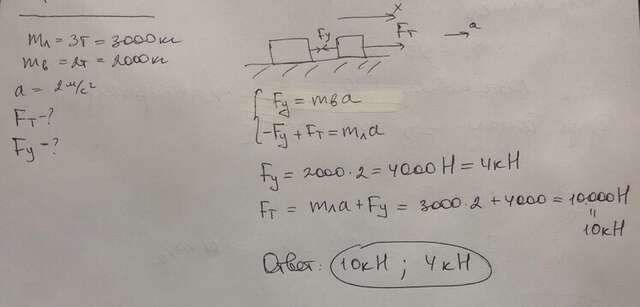 mл = 3т = 3000кг
mв = 2т = 2000кг
a = 2 м/с²
Fт - ?
Fу - ?
x
Fу
Fт
a
Fу = mвa
-Fу + Fт = mлa
Fу = 2000 · 2 = 4000 Н = 4кН
Fт = mлa + Fу = 3000 · 2 + 4000 = 10000Н
"
10кН
Ответ: 10кН ; 4кН